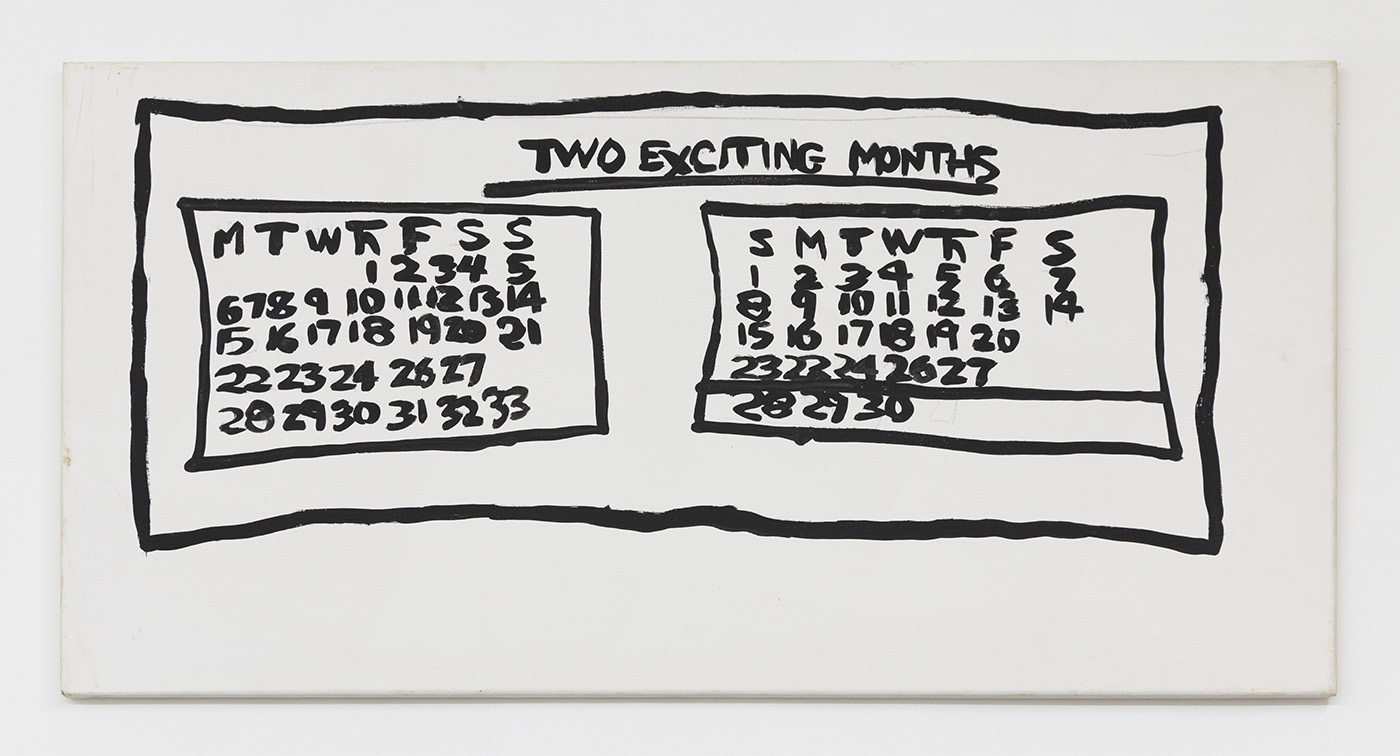 TWO EXCITING MONTHS
M T W Th F S S
1 2 3 4 5
6 7 8 9 10 11 12 13 14
15 16 17 18 19 20 21
22 23 24 26 27
28 29 30 31 32 33
S M T W Th F S
1 2 3 4 5 6 7
8 9 10 11 12 13 14
15 16 17 18 19 20
23 22 24 26 27
28 29 30